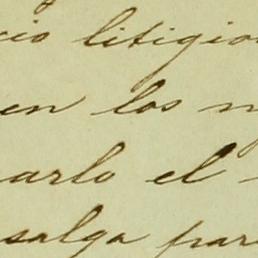 cio litigio
en los n
arlo el
salga par